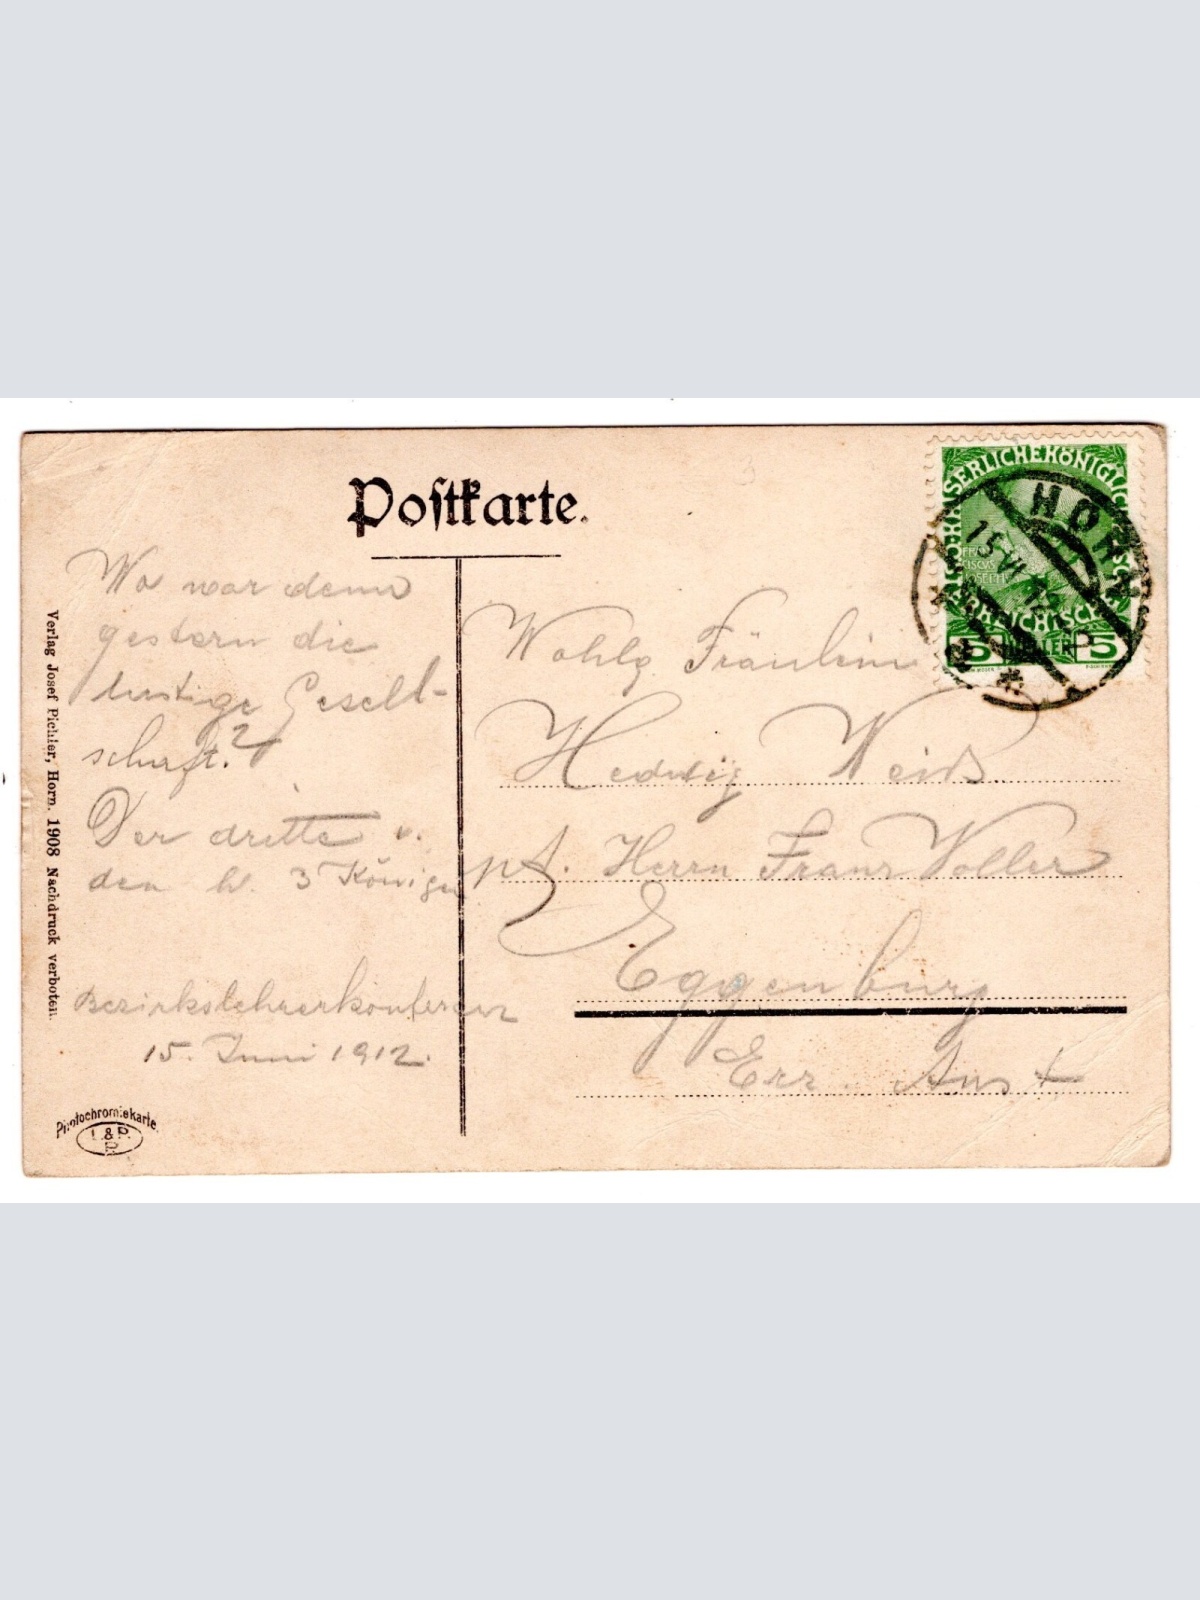 Postkarte.
Wo war denn
gestern die
lustige Gesell-
schaft?
Der dritte v.
den hl. 3 Königen
Bezirkslehrerkonferenz
15. Juni 1912.
Wohlg. Fräulein
Hedwig Weiß
p.A. Herrn Franz Voller
Eggenburg
Erz. Anst
KAISERLICHE KÖNIGLICHE
FRAN
CISCUS
JOSEPH I
ÖSTERREICHISCHE
5 HELLER 5
HORN
15 VI 12
Verlag Josef Pichler, Horn. 1908 Nachdruck verboten.
Photochromiekarte.
L. & P.